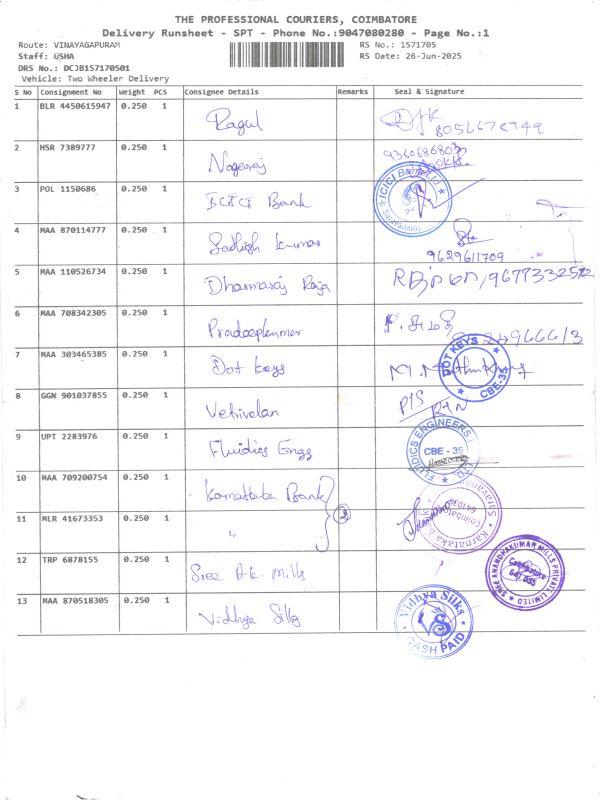 THE PROFESSIONAL COURIERS, COIMBATORE
Delivery Runsheet - SPT - Phone No.:9047080280 - Page No.:1
Route: VINAYAGAPURAM RS No.: 1571705
Staff: USHA RS Date: 26-Jun-2025
DRS No.: DCJB157170501
Vehicle: Two Wheeler Delivery
S No Consignment No Weight PCS Consignee Details Remarks Seal & Signature
1 BLR 4450615947 0.250 1 Ragul
2 HSR 7389777 0.250 1 Nagaraj
3 POL 1150686 0.250 1 ICICI Bank
4 MAA 870114777 0.250 1 Sathish Kumar 9629611709
5 MAA 110526734 0.250 1 Dharmaraj Raja
6 MAA 708342305 0.250 1 Pradeepkumar
7 MAA 303465385 0.250 1 Dot Keys DOT KEYS CBE-35
8 GGN 901037855 0.250 1 Vetrivelan
9 UPT 2283976 0.250 1 Fluidics Engg FLUIDICS ENGINEERS CBE - 35
10 MAA 709200754 0.250 1 Karnataka Bank
11 MLR 41673353 0.250 1 " 2 Karnataka Coimbatore 641035
12 TRP 6878155 0.250 1 Sree A.K. Mills SREE ANANDHAKUMAR MILLS PRIVATE LIMITED Coimbatore 641 035
13 MAA 870518305 0.250 1 Vidhya Silks Vidhya Silks VS CASH PAID